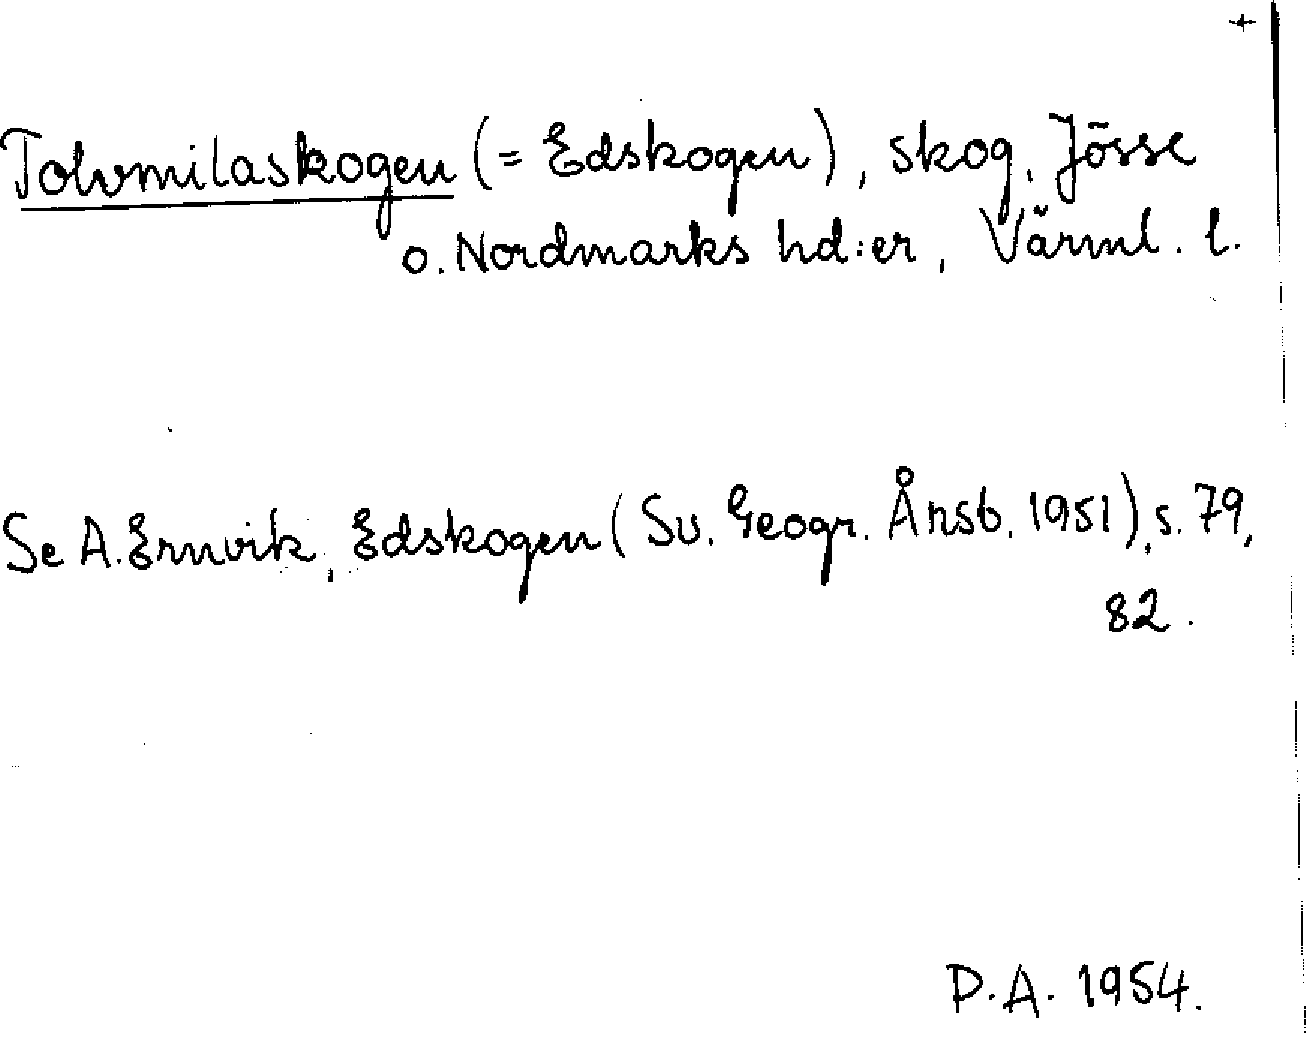 +
Tolvmilaskogen (= Edskogen), skog, Jösse
o. Nordmarks hd:er, Värml. l.
Se A. Ernvik, Edskogen (Sv. Geogr. Årsb. 1951), s. 79,
82.
D.A. 1954.